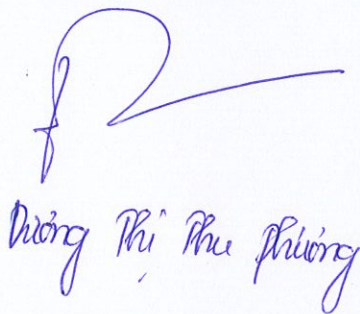 Dương Thị Thu Phương